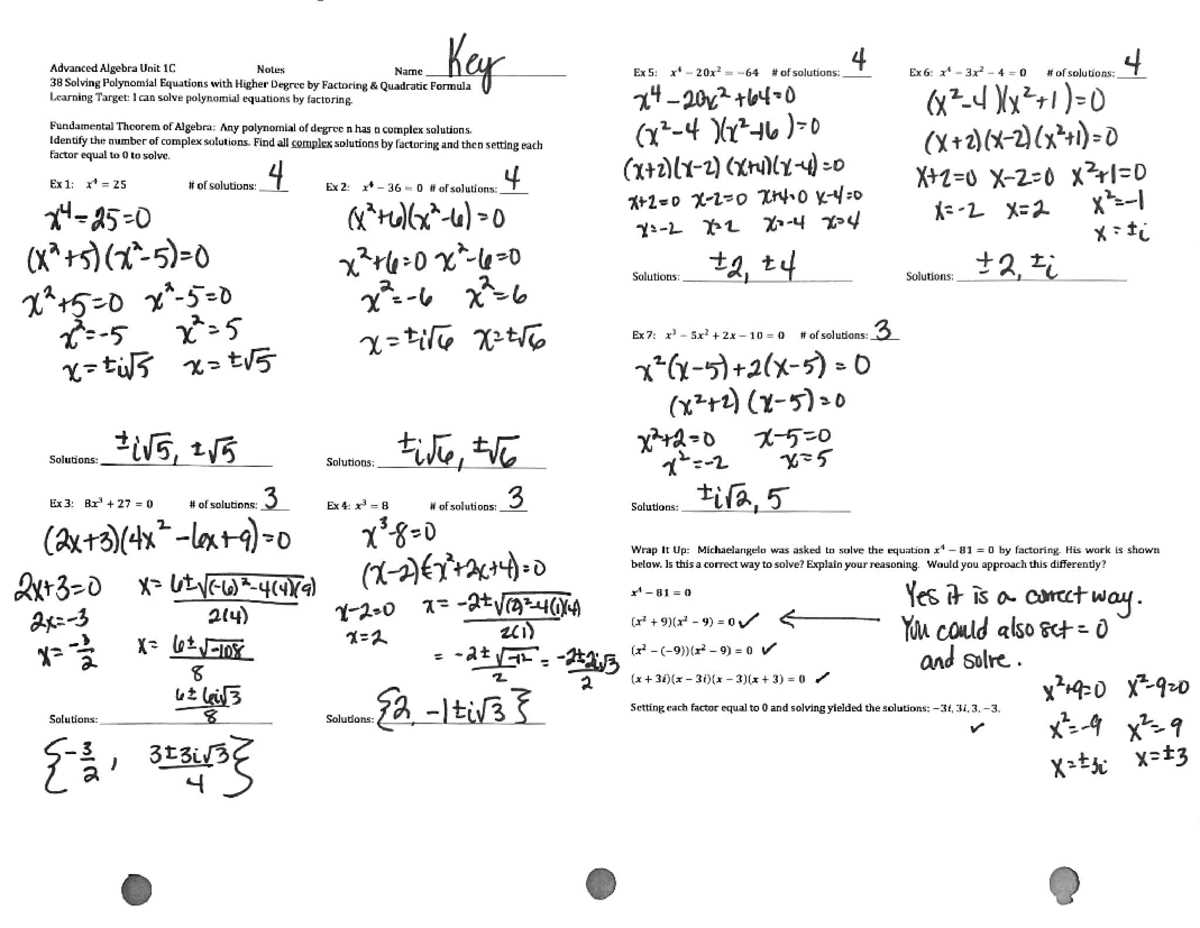 Advanced Algebra Unit 1C Notes Name Key
38 Solving Polynomial Equations with Higher Degree by Factoring & Quadratic Formula
Learning Target: I can solve polynomial equations by factoring.
Fundamental Theorem of Algebra: Any polynomial of degree n has n complex solutions.
Identify the number of complex solutions. Find all complex solutions by factoring and then setting each
factor equal to 0 to solve.
Ex 1: x⁴ = 25 # of solutions: 4
x⁴-25=0
(x²+5)(x²-5)=0
x²+5=0 x²-5=0
x²=-5 x²=5
x=±i√5 x=±√5
Solutions: ±i√5, ±√5
Ex 2: x⁴ – 36 = 0 # of solutions: 4
(x²+6)(x²-6)=0
x²+6=0 x²-6=0
x²=-6 x²=6
x=±i√6 x=±√6
Solutions: ±i√6, ±√6
Ex 3: 8x³ + 27 = 0 # of solutions: 3
(2x+3)(4x²-6x+9)=0
2x+3=0 x= 6±√(-6)²-4(4)(9) / 2(4)
2x=-3
x=-3/2 x= 6±√-108 / 8
6±6i√3 / 8
Solutions:
{-3/2, 3±3i√3 / 4}
Ex 4: x³ = 8 # of solutions: 3
x³-8=0
(x-2)(x²+2x+4)=0
x-2=0 x= -2±√(2)²-4(1)(4) / 2(1)
x=2
= -2±√-12 / 2 = -2±2i√3 / 2
Solutions: {2, -1±i√3}
Ex 5: x⁴ – 20x² = –64 # of solutions: 4
x⁴-20x²+64=0
(x²-4)(x²-16)=0
(x+2)(x-2)(x+4)(x-4)=0
x+2=0 x-2=0 x+4=0 x-4=0
x=-2 x=2 x=-4 x=4
Solutions: ±2, ±4
Ex 6: x⁴ – 3x² – 4 = 0 # of solutions: 4
(x²-4)(x²+1)=0
(x+2)(x-2)(x²+1)=0
x+2=0 x-2=0 x²+1=0
x=-2 x=2 x²=-1
x=±i
Solutions: ±2, ±i
Ex 7: x³ – 5x² + 2x – 10 = 0 # of solutions: 3
x²(x-5)+2(x-5)=0
(x²+2)(x-5)=0
x²+2=0 x-5=0
x²=-2 x=5
Solutions: ±i√2, 5
Wrap It Up: Michaelangelo was asked to solve the equation x⁴ – 81 = 0 by factoring. His work is shown
below. Is this a correct way to solve? Explain your reasoning. Would you approach this differently?
x⁴ – 81 = 0
(x² + 9)(x² – 9) = 0 ✓
(x² – (–9))(x² – 9) = 0 ✓
(x + 3i)(x – 3i)(x – 3)(x + 3) = 0 ✓
Setting each factor equal to 0 and solving yielded the solutions: –3i, 3i, 3, –3.
✓
Yes it is a correct way.
You could also set = 0
and solve.
x²+9=0 x²-9=0
x²=-9 x²=9
x=±3i x=±3